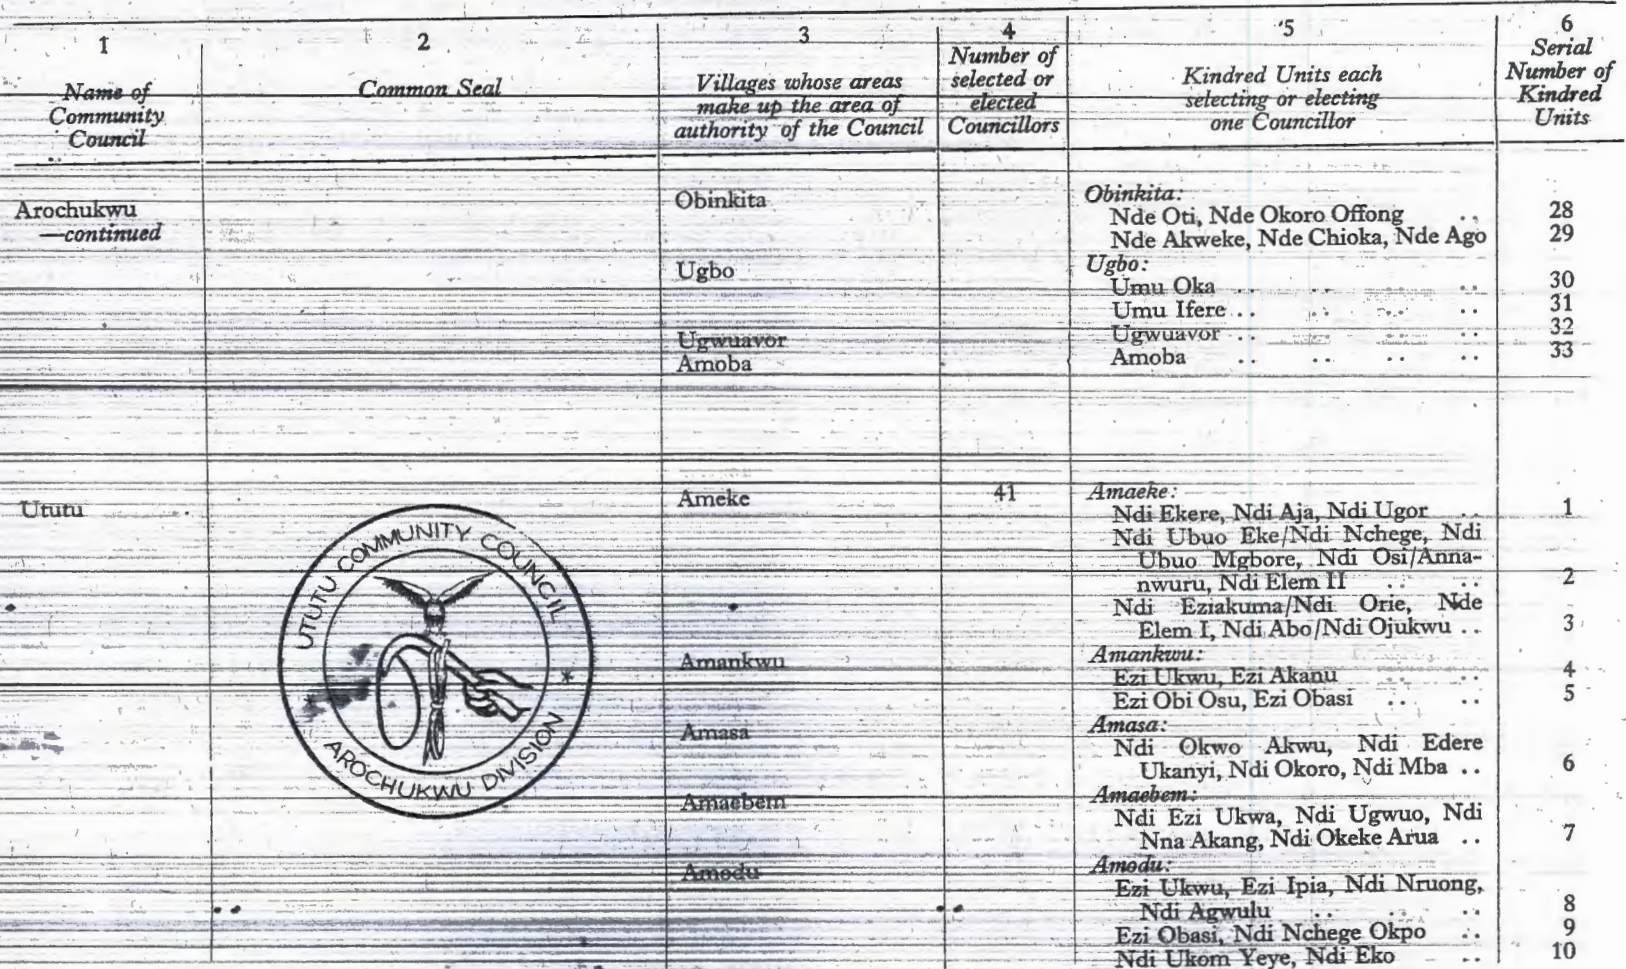 1 2 3 4 5 6
Name of Community Council
Common Seal
Villages whose areas make up the area of authority of the Council
Number of selected or elected Councillors
Kindred Units each selecting or electing one Councillor
Serial Number of Kindred Units
Arochukwu
—continued
Obinkita
Obinkita:
Nde Oti, Nde Okoro Offong .. 28
Nde Akweke, Nde Chioka, Nde Ago 29
Ugbo
Ugbo:
Umu Oka .. .. .. .. 30
Umu Ifere .. .. .. .. 31
Ugwuavor
Ugwuavor .. .. .. .. 32
Amoba
Amoba .. .. .. .. 33
Ututu
UTUTU COMMUNITY COUNCIL
* AROCHUKWU DIVISION *
Ameke
41
Amaeke:
Ndi Ekere, Ndi Aja, Ndi Ugor .. 1
Ndi Ubuo Eke/Ndi Nchege, Ndi
Ubuo Mgbore, Ndi Osi/Anna-
nwuru, Ndi Elem II .. .. 2
Ndi Eziakuma/Ndi Orie, Nde
Elem I, Ndi Abo/Ndi Ojukwu .. 3
Amankwu
Amankwu:
Ezi Ukwu, Ezi Akanu .. .. 4
Ezi Obi Osu, Ezi Obasi .. .. 5
Amasa
Amasa:
Ndi Okwo Akwu, Ndi Edere
Ukanyi, Ndi Okoro, Ndi Mba .. 6
Amaebem
Amaebem:
Ndi Ezi Ukwa, Ndi Ugwuo, Ndi
Nna Akang, Ndi Okeke Arua .. 7
Amodu
Amodu:
Ezi Ukwu, Ezi Ipia, Ndi Nruong,
Ndi Agwulu .. .. .. 8
Ezi Obasi, Ndi Nchege Okpo .. 9
Ndi Ukom Yeye, Ndi Eko .. 10